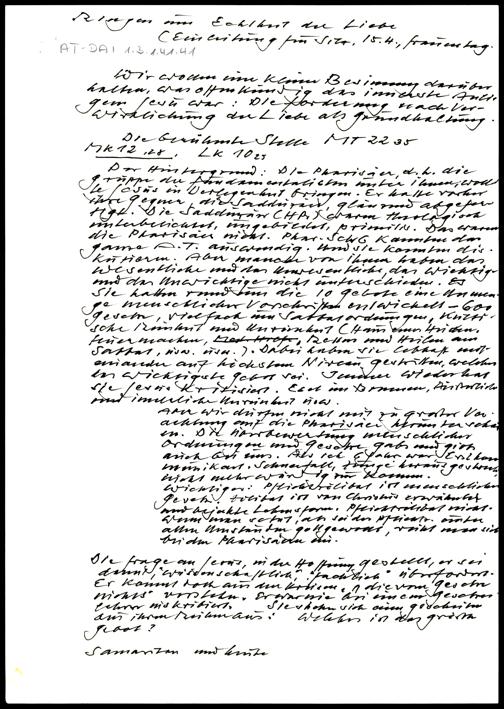 Ringen um Echtheit der Liebe
(Einleitung für Silv. 15.H., Frauentag.
AT-DA1 1.2.1.41.41
Wir wollen eine kleine Besinnung darüber
halten, was offenkundig das innerste Anlie-
gen Jesu war: Die Forderung nach Ver-
wirklichung der Liebe als Grundhaltung.
Die berühmte Stelle MT 22 35
MK 12,28. LK 10 25
Der Hintergrund: Die Pharisäer, d.h. die
Gruppe der Fundamentalisten unter ihnen, woll-
te Jesus in Verlegenheit bringen. Er hatte vorher
ihre Gegner, die Sadduzäer, glänzend abgefer-
tigt. Die Sadduzäer (HPr) waren theologisch
unterbelichtet, ungebildet, primitiv. Das waren
die Pharisäer nicht. Phar. Schg kannten das
ganze A.T. auswendig. Und sie konnten dis-
kutieren. Aber manche von ihnen haben das
Wesentliche und das Unwesentliche, das Wichtige
und das Unwichtige nicht unterschieden. Es
Sie hatten rund um die 10 Gebote eine Unmen-
ge menschlicher Vorschriften entwickelt – 600
Gesetze, vielfach um Sabbatordnungen, kulti-
sche Reinheit und Unreinheit (Haus eines Heiden,
Feuermachen, Retten und Heilen am
Sabbat, usw. usw.). Dabei haben sie lebhaft mit-
einander auf höchstem Niveau gestritten, welches
das wichtigste Gebot sei. Immer wieder hat
sie Jesus kritisiert. Esel im Brunnen, Äußerliche
und innerliche Unreinheit usw.
Aber wir dürfen nicht mit zu großer Ver-
achtung auf die Pharisäer herunterschau-
en. Die Überbewertung menschlicher
Ordnungen und Gesetze gab und gibt
auch bei uns. Als ich 6 Jahr war Erstkom
munikant. Schneefall, Zunge herausgestreckt
nicht mehr würdig zur Komm.
Wichtiger. Pflichtzölibat ist menschliches
Gesetz. Zölibat ist von Christus erwünschte
und bejahte Lebensform. Pflichtzölibat nicht.
Wenn man so tut, als sei der Pflichtz. unter
allen Umständen gottgewollt, nähert man sich
bei den Pharisäern an.
Die Frage an Jesus, in der Hoffnung gestellt, er sei
damit "wissenschaftlich", "fachlich" überfordert.
Er kommt doch aus den Kreisen, "die vom Gesetz
nichts" verstehen. Er war nie bei einem Gesetzes-
lehrer inskribiert. Sie suchen sich einen gescheiten
aus ihren Reihen aus: Welches ist das größte
Gebot?
Samariter und heute